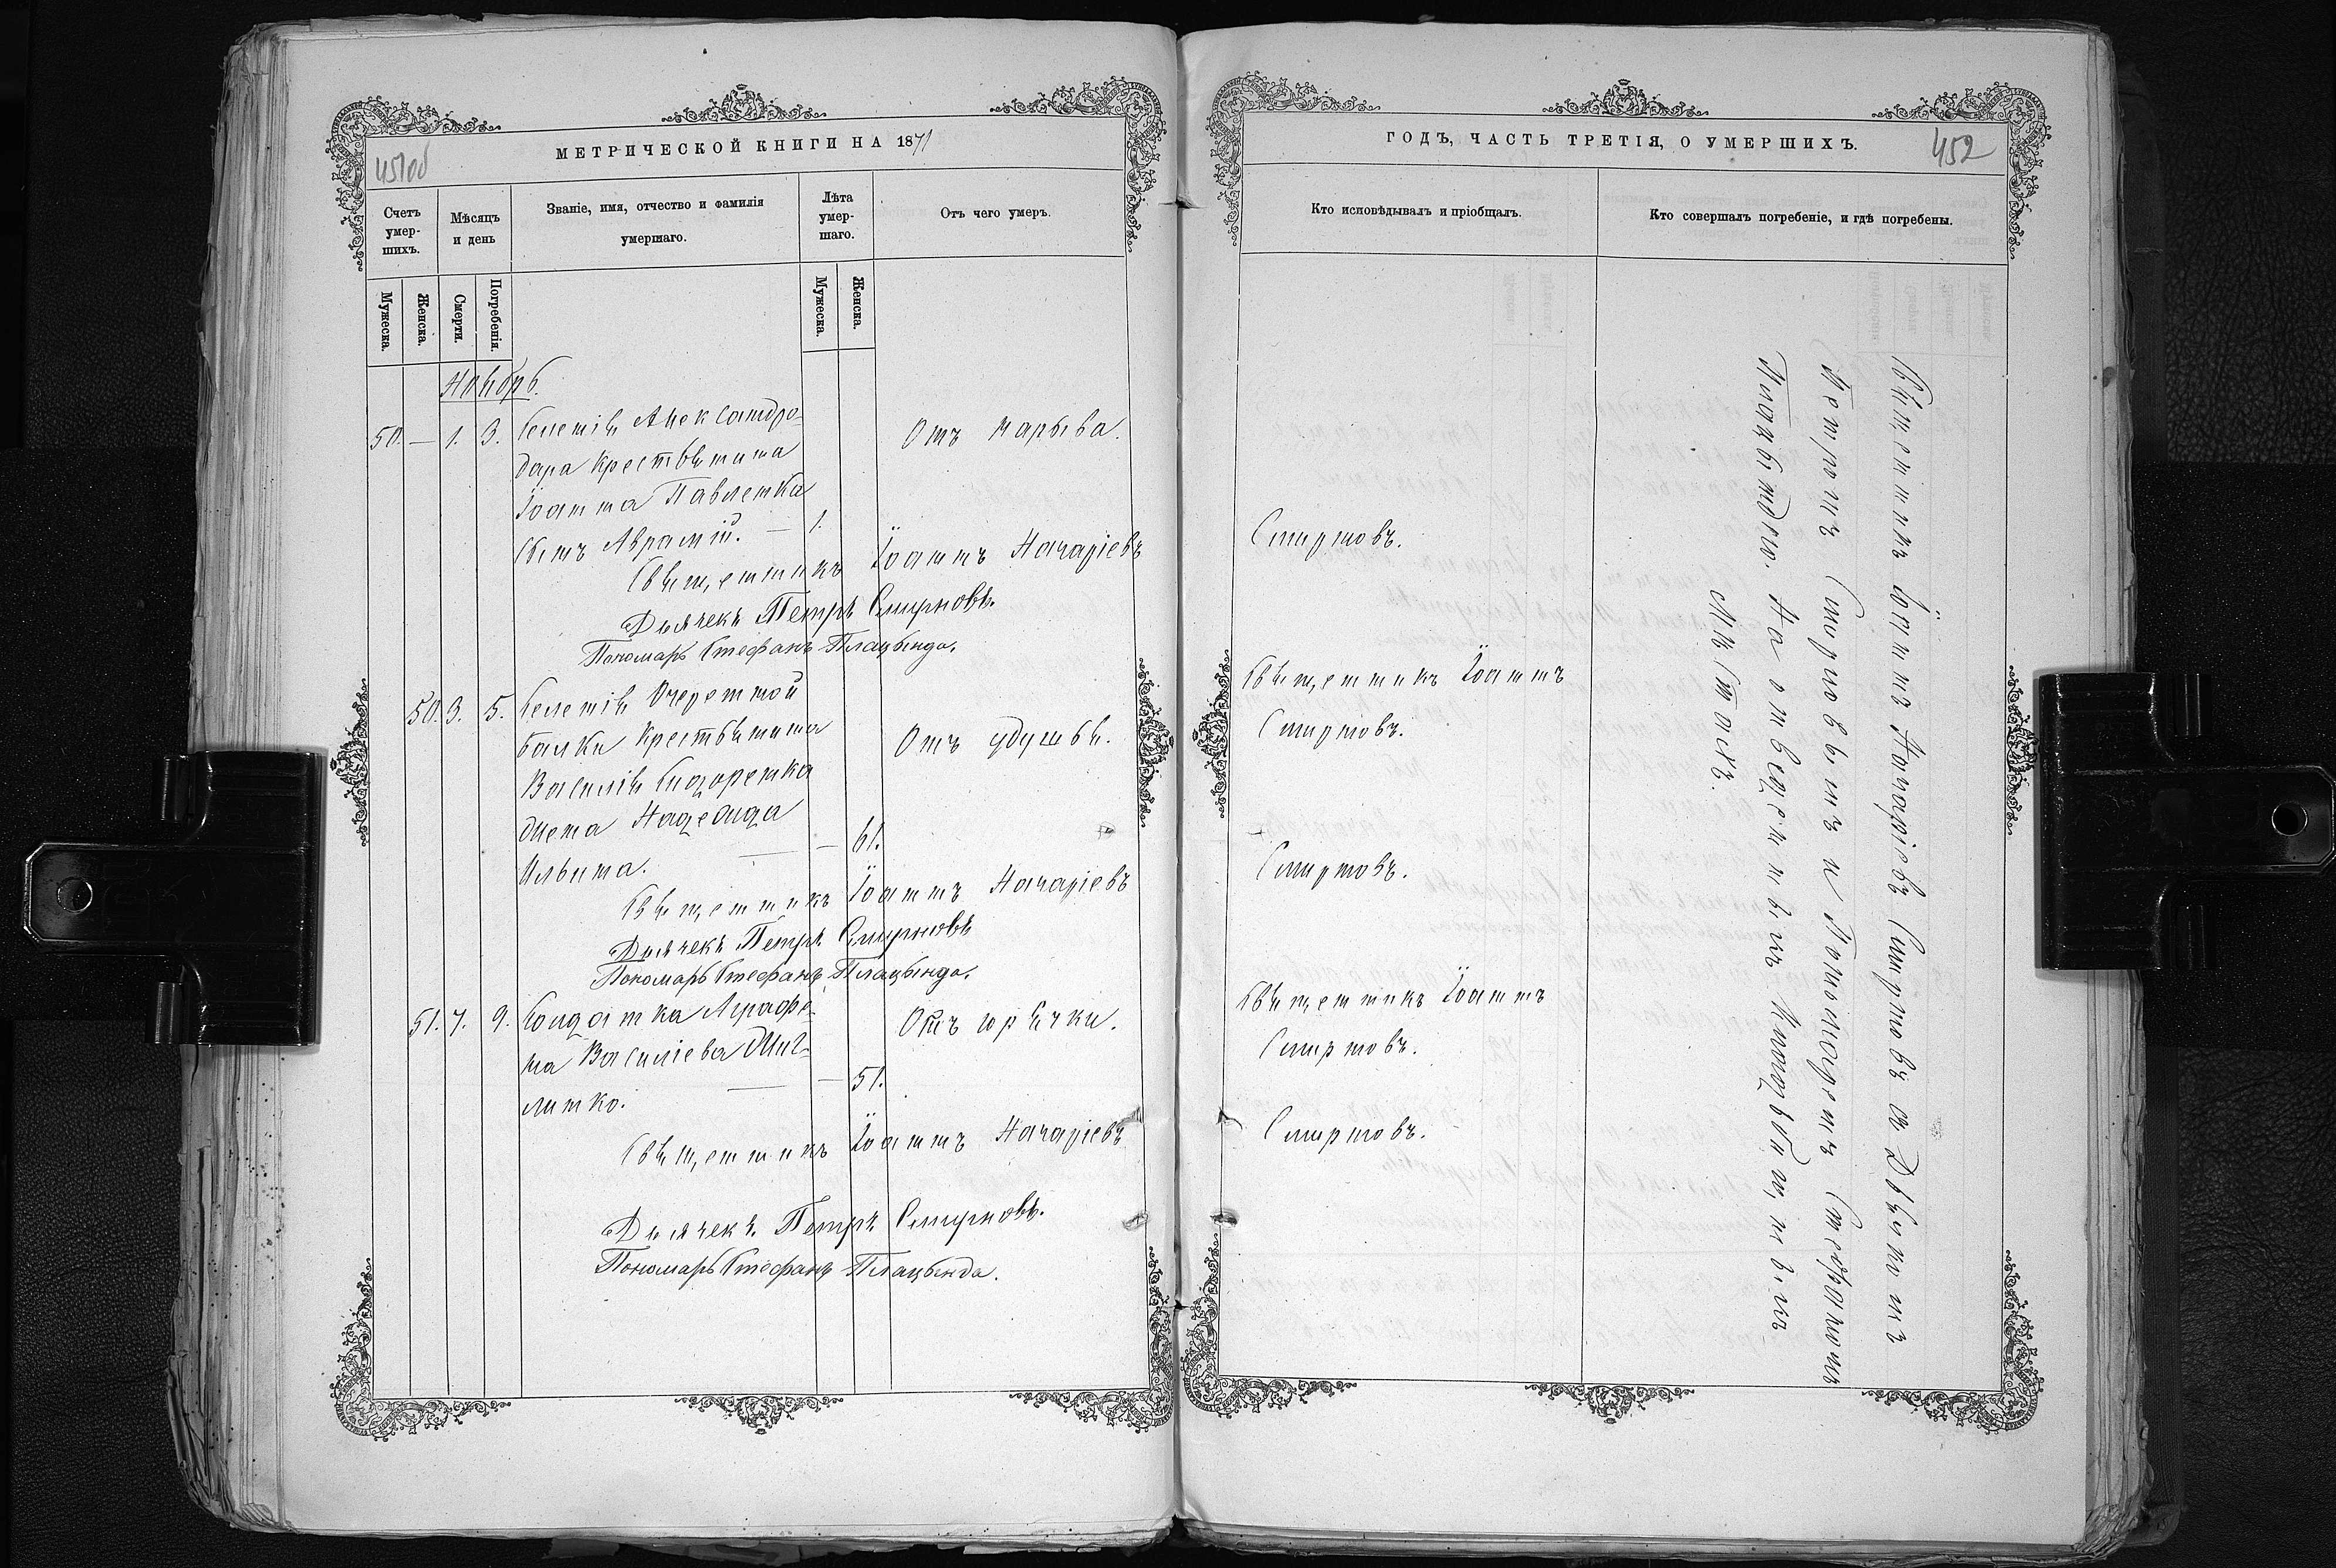 МЕТРИЧЕСКОЙ КНИГИ НА 1871
451об
Счетъ умер-шихъ.
Мѣсяцъ и день
Званіе, имя, отчество и фамилія умершаго.
Лѣта умер-шаго.
Отъ чего умеръ.
Мужеска.
Женска.
Смерти.
Погребенія.
Мужеска.
Женска.
Ноябрь.
50. — 1. 3. Селенія Александро- Отъ нарыва.
дара крестьянина
Іоанна Павленка
сынъ Аврамій. — 1.
Священникъ Іоаннъ Назаріевъ
Дьячекъ Петръ Смирновъ.
Пономарь Стефанъ Плацында.
50. 3. 5. Селенія Очеретной
балки крестьянина Отъ удушья.
Василія Сидоренка
жена Надежда
Ильина. — 61.
Священникъ Іоаннъ Назаріевъ
Дьячекъ Петръ Смирновъ
Пономарь Стефанъ Плацында.
51. 7. 9. Солдатка Аграфе- Отъ горячки.
на Василіева
литко. — 51.
Священникъ Іоаннъ Назаріевъ
Дьячекъ Петръ Смирновъ.
Пономарь Стефанъ Плацында.
ГОДЪ, ЧАСТЬ ТРЕТІЯ, О УМЕРШИХЪ.
452
Кто исповѣдывалъ и пріобщалъ.
Кто совершалъ погребеніе, и гдѣ погребены.
Смирновъ.
Священникъ Іоаннъ
Смирновъ.
Смирновъ.
Священникъ Іоаннъ
Смирновъ.
Смирновъ.
Священникъ Іоаннъ Назаріевъ Смирновъ съ Дьячкомъ
Петромъ Смирновымъ и Пономаремъ Стефаномъ
Плацындою. На отведенныхъ Кладбищныхъ
мѣстахъ.